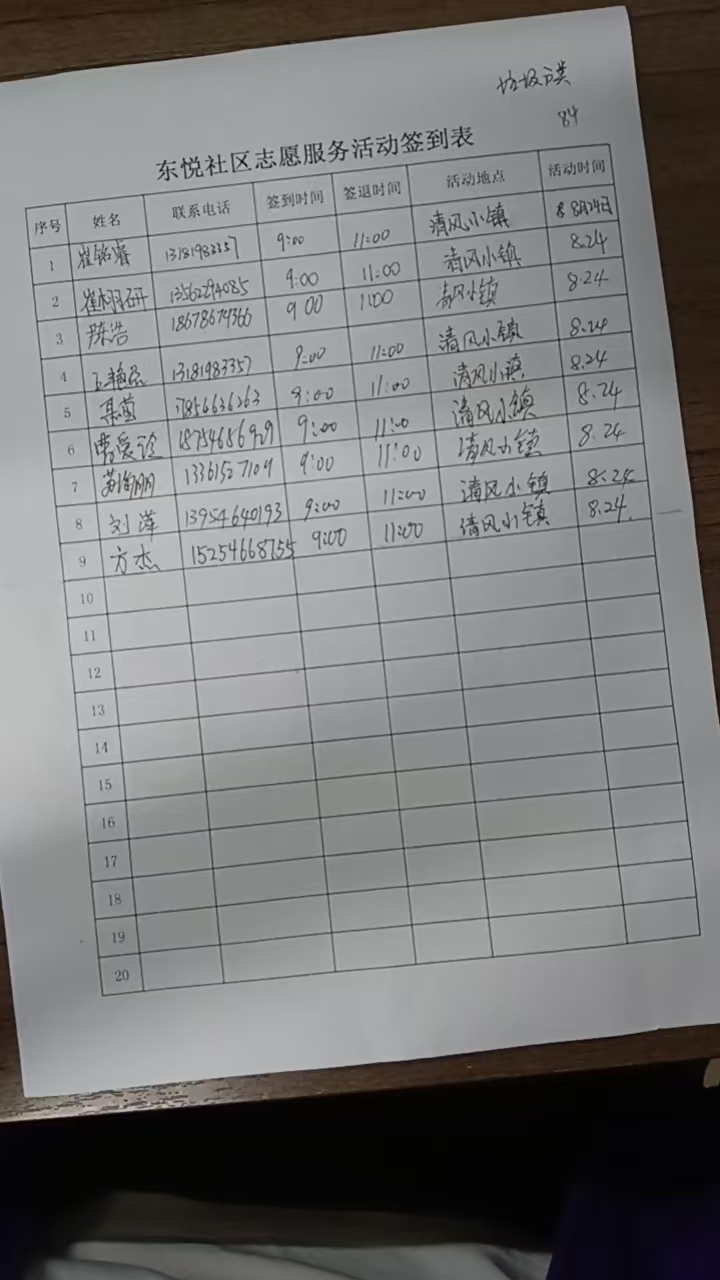 垃圾分类
84
东悦社区志愿服务活动签到表
序号 姓名 联系电话 签到时间 签退时间 活动地点 活动时间
1 崔铭睿 13181983357 9:00 11:00 清风小镇 8月24日
2 崔栩研 13562294085 9:00 11:00 清风小镇 8.24
3 陈浩 18678674366 9 00 11:00 清风小镇 8.24
4 13181983357 9:00 11:00 清风小镇 8.24
5 17856636263 9:00 11:00 清风小镇 8.24
6 曹爱珍 18754686929 9:00 11:00 清风小镇 8.24
7 13361527109 9:00 11:00 清风小镇 8.24
8 刘萍 13954640193 9:00 11:00 清风小镇 8.24
9 方杰 15254668755 9:00 11:00 清风小镇 8.24.
10
11
12
13
14
15
16
17
18
19
20